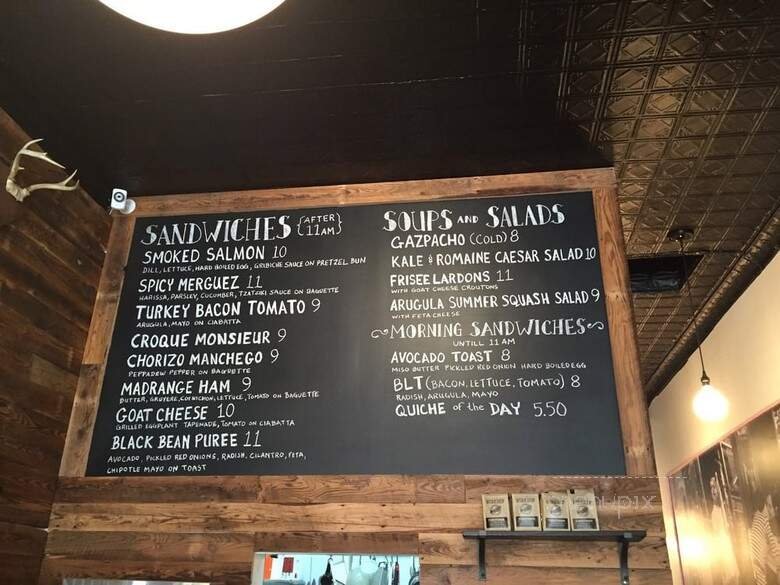 SANDWICHES {AFTER 11AM}
SMOKED SALMON 10
DILL, LETTUCE, HARD BOILED EGG, GRIBICHE SAUCE ON PRETZEL BUN
SPICY MERGUEZ 11
HARISSA, PARSLEY, CUCUMBER, TZATZIKI SAUCE ON BAGUETTE
TURKEY BACON TOMATO 9
ARUGULA, MAYO ON CIABATTA
CROQUE MONSIEUR 9
CHORIZO MANCHEGO 9
PEPPADEW PEPPER ON BAGUETTE
MADRANGE HAM 9
BUTTER, GRUYERE, CORNICHON, LETTUCE, TOMATO ON BAGUETTE
GOAT CHEESE 10
GRILLED EGGPLANT TAPENADE, TOMATO ON CIABATTA
BLACK BEAN PUREE 11
AVOCADO, PICKLED RED ONIONS, RADISH, CILANTRO, FETA,
CHIPOTLE MAYO ON TOAST
SOUPS AND SALADS
GAZPACHO (COLD) 8
KALE & ROMAINE CAESAR SALAD 10
FRISEE LARDONS 11
WITH GOAT CHEESE CROUTONS
ARUGULA SUMMER SQUASH SALAD 9
WITH FETA CHEESE
MORNING SANDWICHES
UNTILL 11 AM
AVOCADO TOAST 8
MISO BUTTER PICKLED RED ONION HARD BOILED EGG
BLT (BACON, LETTUCE, TOMATO) 8
RADISH, ARUGULA, MAYO
QUICHE of the DAY 5.50